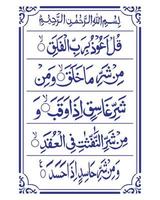 بِسْمِ اللهِ الرَّحْمٰنِ الرَّحِيْمِ
قُلْ اَعُوْذُ بِرَبِّ الْفَلَقِ ۙ
مِنْ شَرِّ مَا خَلَقَ ۙ وَمِنْ
شَرِّ غَاسِقٍ اِذَا وَقَبَ ۙ وَ
مِنْ شَرِّ النَّفّٰثٰتِ فِي الْعُقَدِ ۙ
وَمِنْ شَرِّ حَاسِدٍ اِذَا حَسَدَ ۙ